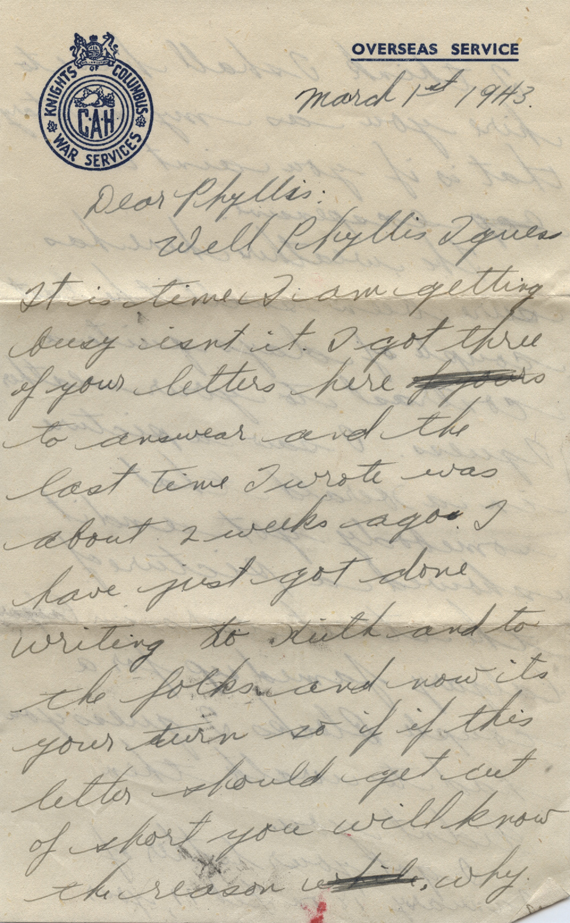 OVERSEAS SERVICE
KNIGHTS OF COLUMBUS
CAH
WAR SERVICES
March 1st 1943.
Dear Phyllis:
Well Phyllis I guess
It is time I am getting
busy isnt it. I got three
of your letters here
to answear and the
last time I wrote was
about 2 weeks ago. I
have just got done
writing to Ruth and to
the folks. and now its
your turn so if if this
letter should get cut
of short you will know
the reason why.